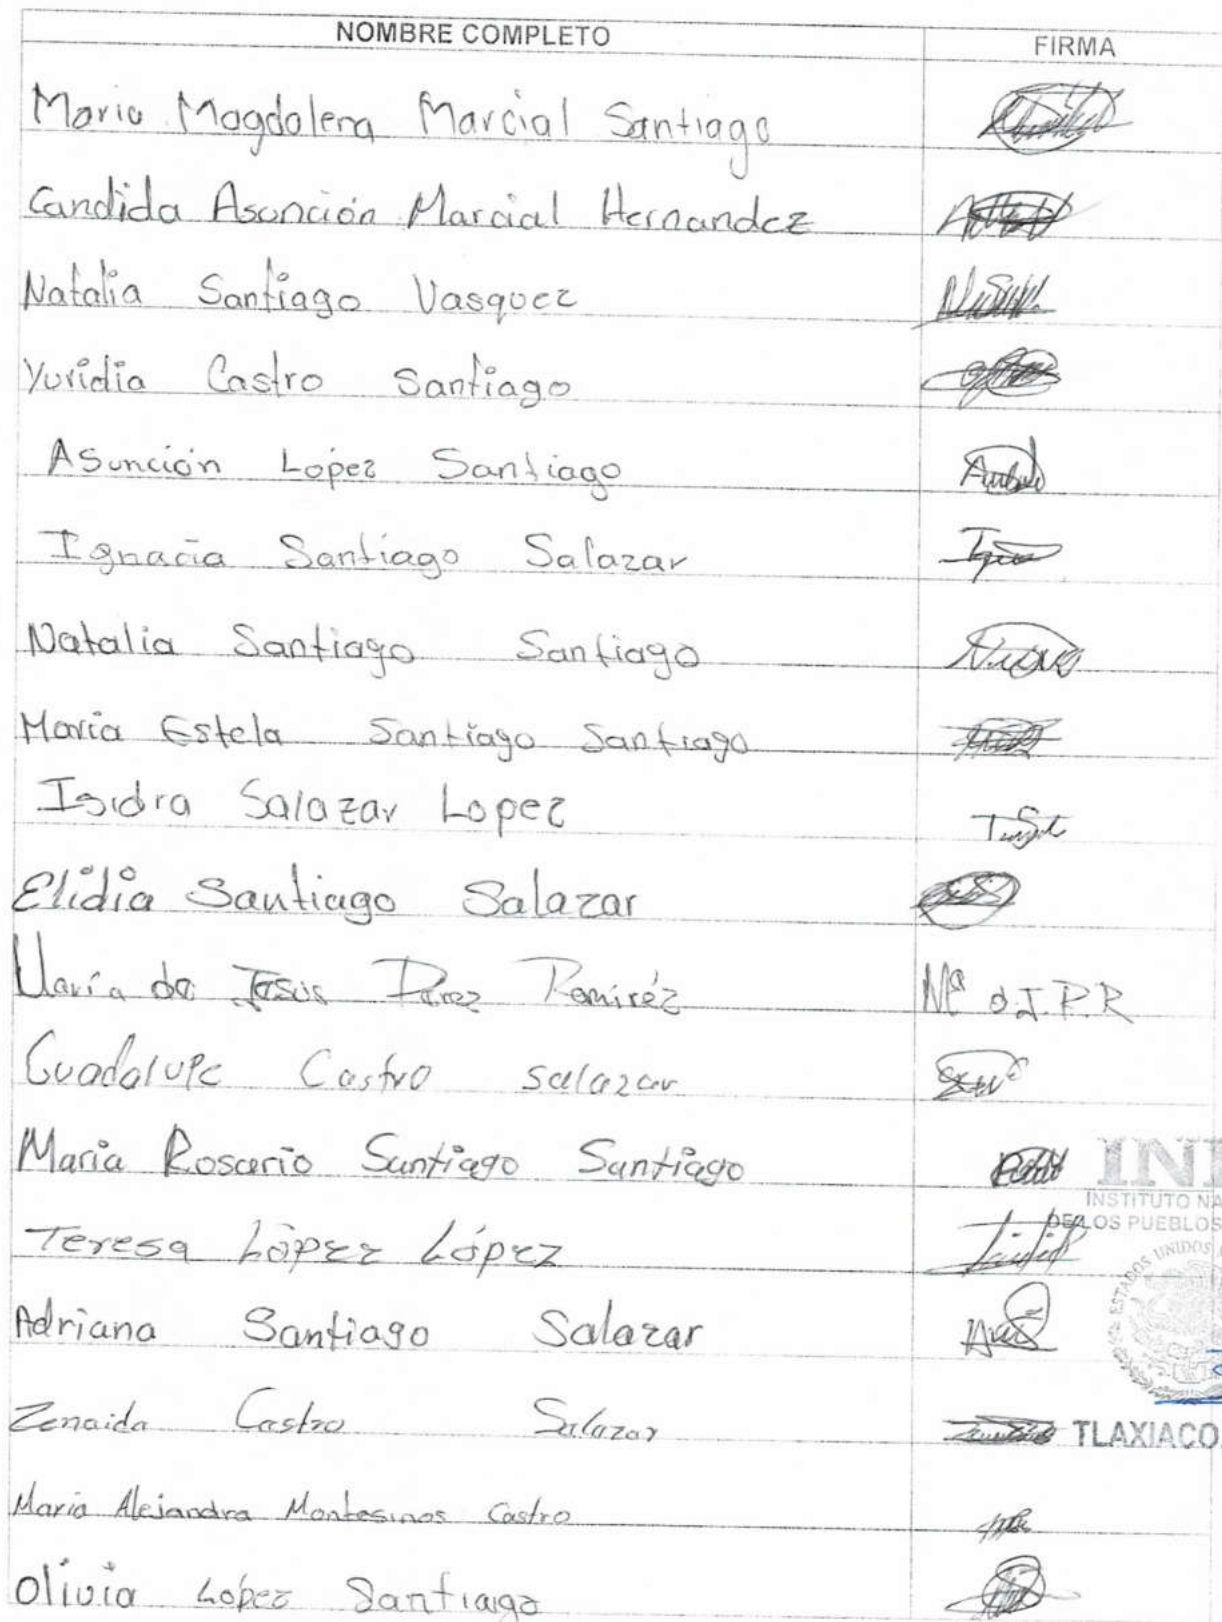 NOMBRE COMPLETO FIRMA
Maria Magdalena Marcial Santiago
Candida Asunción Marcial Hernandez
Natalia Santiago Vasquez
Yuridia Castro Santiago
Asunción Lopez Santiago
Ignacia Santiago Salazar
Natalia Santiago Santiago
Maria Estela Santiago Santiago
Isidra Salazar Lopez
Elidia Santiago Salazar
María de Jesus Perez Remiréz Mª d J.P.R
Guadalupe Castro Salazar
Maria Rosario Santiago Santiago
INSTITUTO NA
DE LOS PUEBLOS
Teresa López López
ESTADOS UNIDOS
Adriana Santiago Salazar
Zenaida Castro Salazar
TLAXIACO
Maria Alejandra Montesinos Castro
Olivia Lopez Santiago